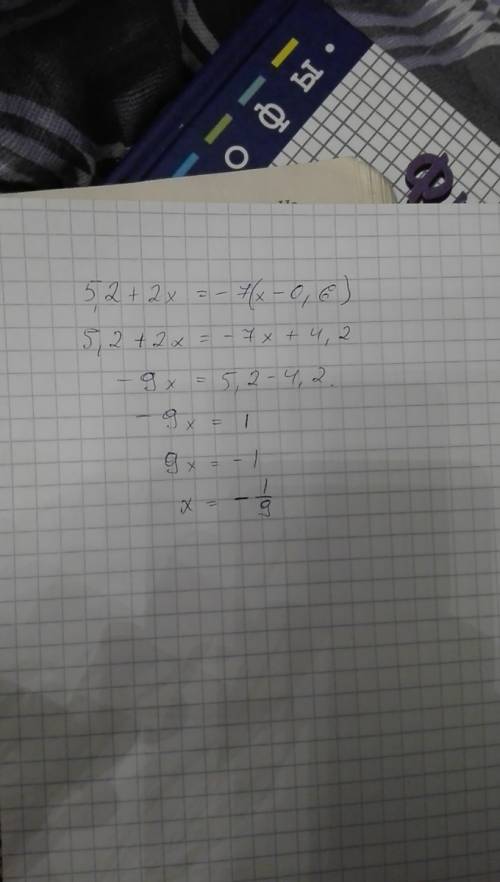 о ф ы .
Ф
5,2 + 2x = - 7(x - 0,6)
5,2 + 2x = - 7x + 4,2
- 9x = 5,2 - 4,2.
- 9x = 1
9x = - 1
x = - 1/9